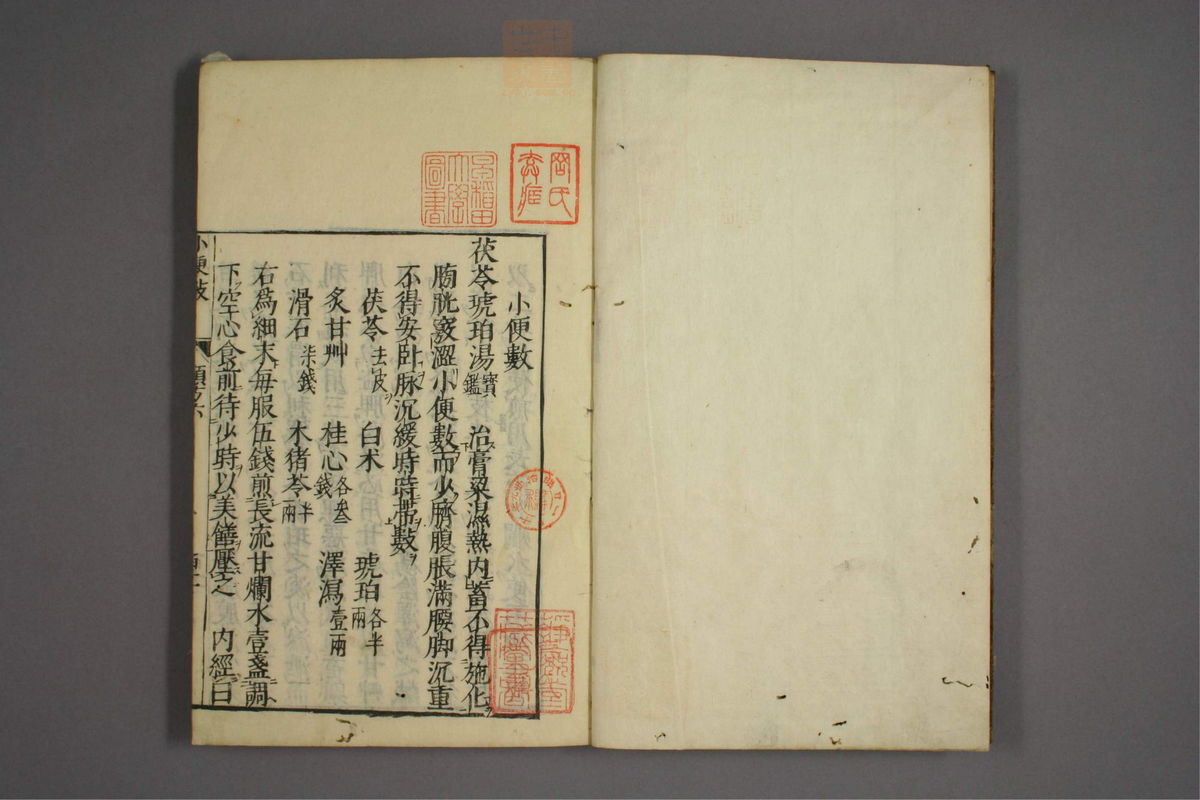 小便數
茯苓琥珀湯寶鑑 治膏粱濕熱内蓄不得施化
膀胱竅澀小便數而少臍腹脹滿腰脚沉重
不得安卧脉沉緩時時帶數
茯苓去皮 白术 琥珀各半兩
炙甘艸 桂心各叁錢 澤瀉壹兩
滑石柒錢 木猪苓半兩
右爲細末每服伍錢煎長流甘爛水壹盞調
下空心食前待少時以美饍壓之 内經曰
早稲田大學圖書